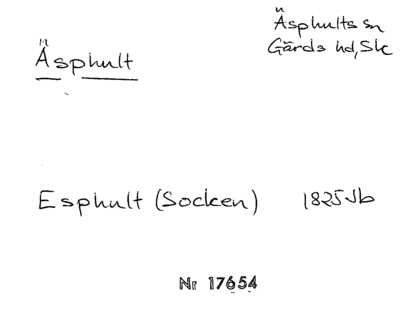 Äsphults sn
Gärds hd, Sk
Äsphult
Esphult (Socken) 1825 Jb
Nr 17654